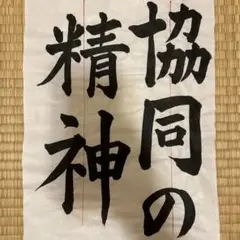 協同の
精神